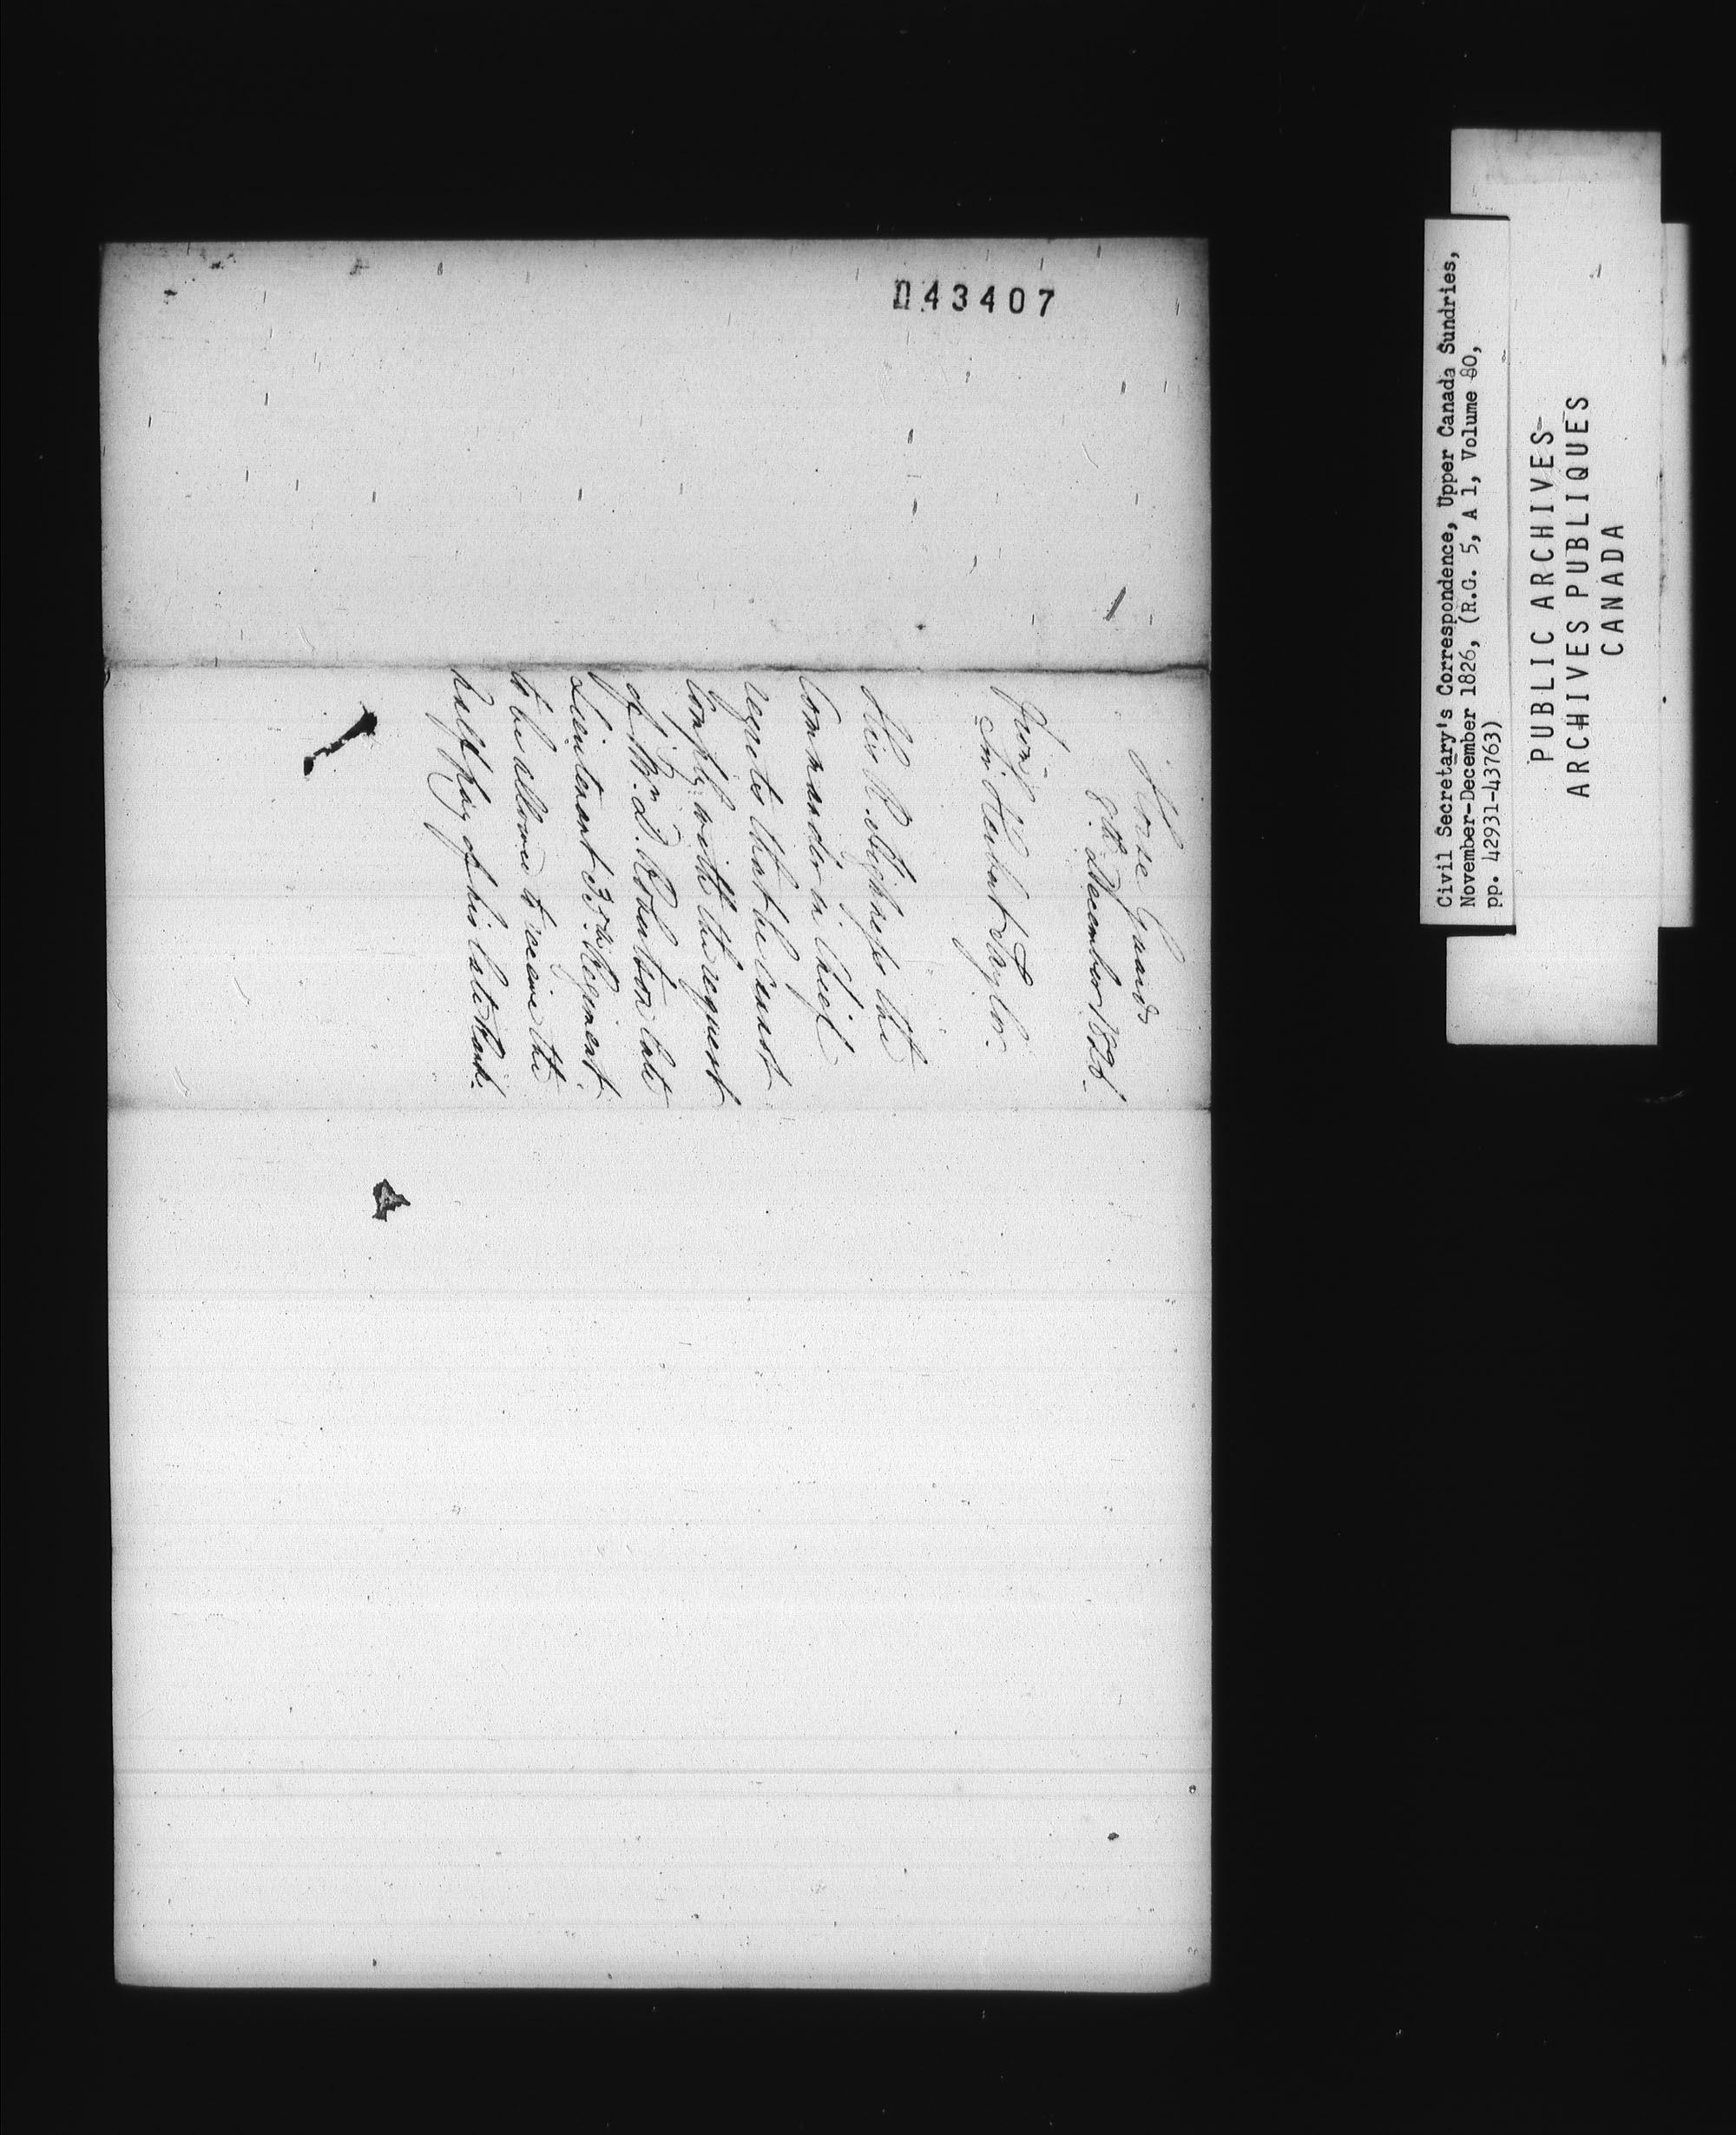 043407
Horse Guards
8th December 1826.
Sir Herbert Taylor.
His R. Highness the
Commander in Chief
regrets that he cannot
comply with the request
of Mr. D. Robertson late
Lieutenant 35th Regiment
to be allowed to receive the
half pay of his late Rank.
Civil Secretary's Correspondence, Upper Canada Sundries,
November-December 1826, (R.G. 5, A 1, Volume 80,
pp. 42931-43763)
PUBLIC ARCHIVES
ARCHIVES PUBLIQUES
CANADA